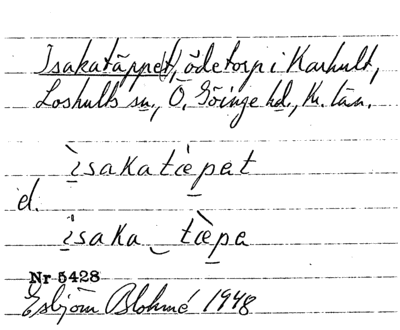 Isakatäppet, ödetorp i Karhult,
Loshults sn., Ö. Göinge hd., Kr. län.
ìsakatæpet
el.
ìsaka‿tæ̀pe
Nr 5428
Esbjörn Blohmé 1948